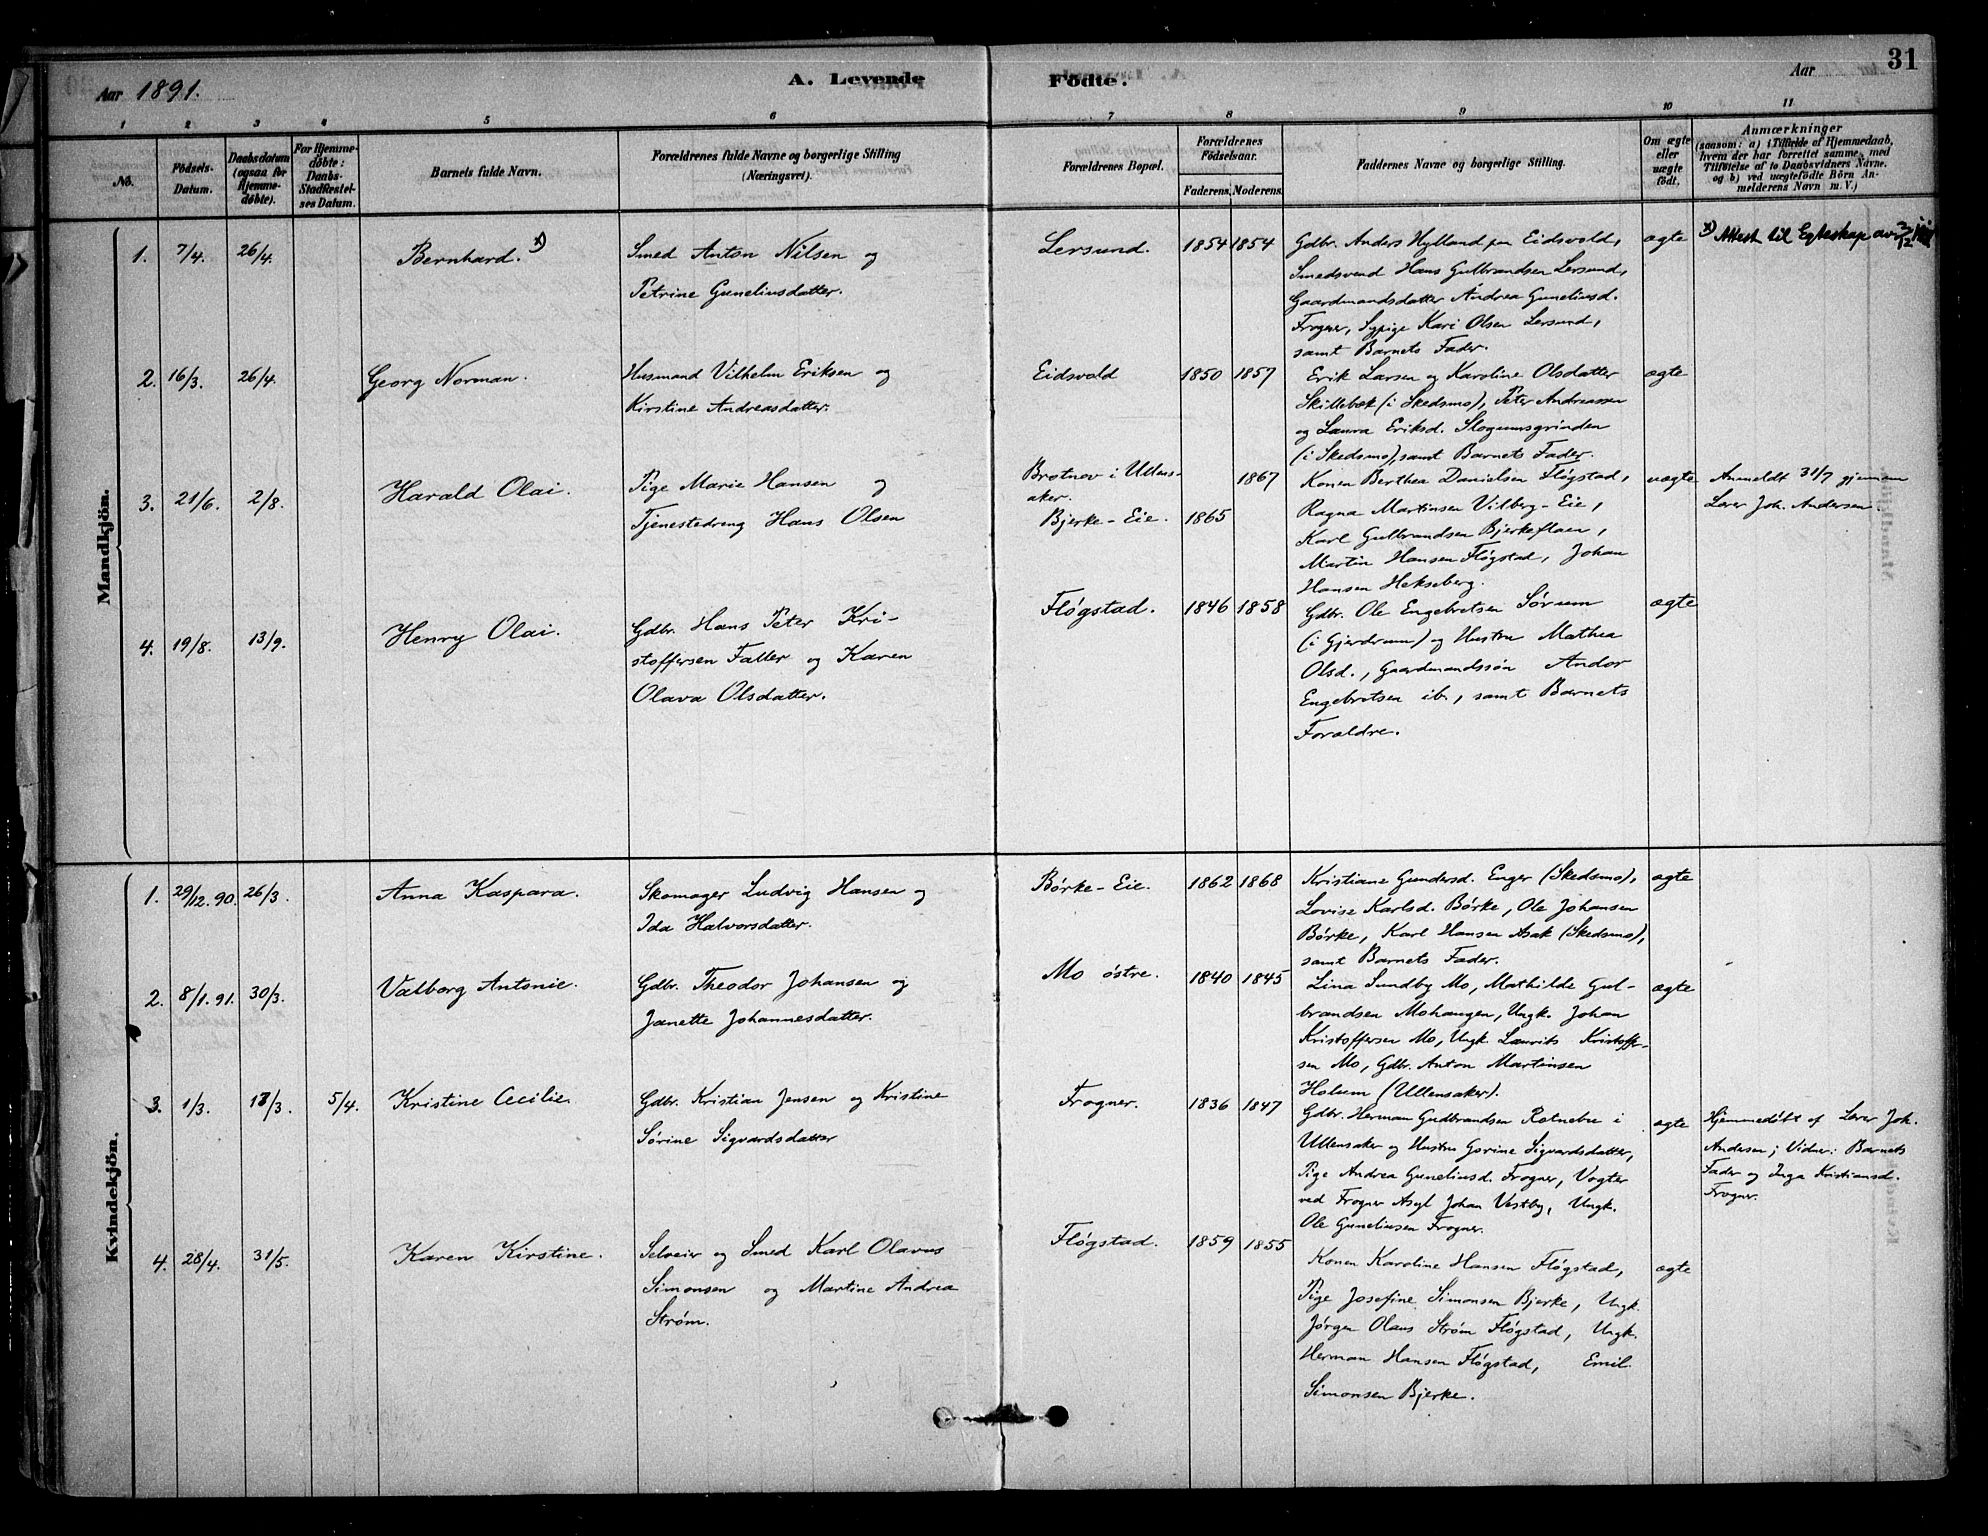 Aar 1891.
A. Levende Födte.
Aar
31
1 2 3 4 5 6 7 8 9 10 11
No.
Födsels-Datum.
Daabsdatum (ogsaa for Hjemmedøbte).
For Hjemmedøbte: Daabs-Stadfæstelses Datum.
Barnets fulde Navn.
Forældrenes fulde Navne og borgerlige Stilling (Næringsvei).
Forældrenes Bopæl.
Forældrenes Födselsaar.
Faderens. Moderens.
Faddernes Navne og borgerlige Stilling.
Om ægte eller uægte födt.
Anmærkninger
(saasom: a) i Tilfælde af Hjemmedaab, hvem der har forrettet samme, med Tilföielse af to Daabsvidners Navne, og b) ved uægtefödte Börn Anmelderens Navn m. V.)
Mandkjön.
1. 7/4. 26/4. Bernhard. x)
Smed Anton Nilsen og
Petrine Guneliusdatter.
Lersund. 1854 1854
Gdbr. Anders Hylland paa Eidsvold,
Smedsvend Hans Gulbrandsen Lersund,
Gaardmandsdatter Andrea Guneliusd.
Frogner, Sypige Kari Olsen Lersund,
samt Barnets Fader.
ægte
x) Attest til Egteskap av
2. 16/3. 26/4. Georg Norman.
Husmand Vilhelm Eriksen og
Kirstine Andreasdatter.
Eidsvold 1850 1857
Erik Larsen og Karoline Olsdatter
Skillebæk (i Skedsmo), Peter Andreassen
og Laura Eriksd. Slogumsgrinden
(i Skedsmo), samt Barnets Fader.
ægte
3. 21/6. 2/8. Harald Olai.
Pige Marie Hansen og
Tjenestedreng Hans Olsen
Brotnov i Ullens-
aker. 1867
Bjerke-Eie. 1865
Konen Berthea Danielsen Fløgstad,
Ragna Martinsen Vilberg-Eie,
Karl Gulbrandsen Bjerkeflaen,
Martin Hansen Fløgstad, Johan
Hansen Hekseberg.
uægte
Anmeldt 31/7 gjennem
Lærer Joh. Andersen.
4. 19/8. 13/9. Henry Olai.
Gdbr. Hans Peter Kri-
stoffersen Faller og Karen
Olava Olsdatter.
Fløgstad. 1846 1858
Gdbr. Ole Engebretsen Sørum
(i Gjerdrum) og Hustru Mathea
Olsd., Gaardmandssøn Andor
Engebretsen ib., samt Barnets
Forældre.
ægte
Kvindekjön.
1. 29/12. 90. 26/3. Anna Kaspara.
Skomager Ludvig Hansen og
Ida Halvorsdatter.
Børke-Eie. 1862 1868
Kristiane Gundersd. Enger (Skedsmo),
Lovise Karlsd. Børke, Ole Johansen
Børke, Karl Hansen Asak (Skedsmo),
samt Barnets Fader.
ægte
2. 8/1. 91. 30/3. Valborg Antonie.
Gdbr. Theodor Johansen og
Janette Johannesdatter.
Mo østre. 1840 1845
Lina Sundby Mo, Mathilde Gul-
brandsen Mohaugen, Ungk. Johan
Kristoffersen Mo, Ungk. Laurits Kristoffer-
sen Mo, Gdbr. Anton Martinsen
Holum (Ullensaker).
ægte
3. 1/3. 13/3. 5/4. Kristine Cecilie.
Gdbr. Kristian Jensen og Kristine
Sørine Sigvardsdatter
Frogner. 1836 1847
Gdbr. Herman Gudbrandsen Rotnebu i
Ullensaker og Hustru Gorine Sigvardsdatter,
Pige Andrea Guneliusd. Frogner, Vogter
ved Frogner Asyl Johan Vestby, Ungk.
Ole Guneliusen Frogner.
ægte
Hjemmedøbt af Lærer Joh.
Andersen; Vidner: Barnets
Fader og Inga Kristiansd.
Frogner.
4. 28/4. 31/5. Karen Kirstine.
Selveier og Smed Karl Olavus
Simonsen og Martine Andrea
Strøm.
Fløgstad. 1859 1855
Konen Karoline Hansen Fløgstad,
Pige Josefine Simonsen Bjerke, Ungk.
Jørgen Olaus Strøm Fløgstad, Ungk.
Herman Hansen Fløgstad, Emil
Simonsen Bjerke.
ægte